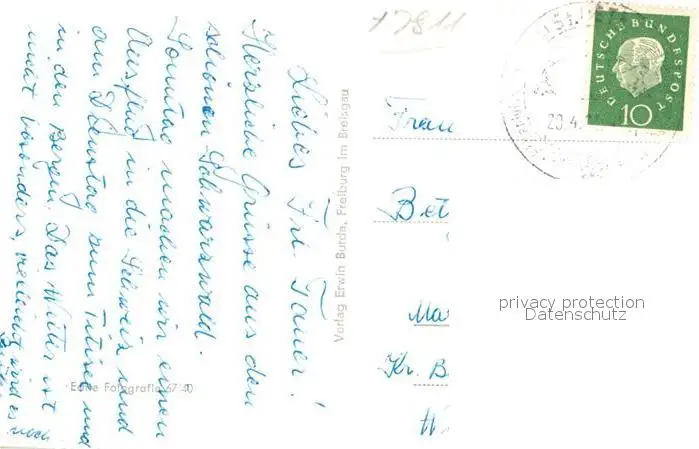 Liebes Frl. Tauer!
Herzliche Grüsse aus dem
schönen Schwarzwald.
Sonntag machen wir einen
Ausflug in die Schweiz und
am Dienstag zum Titisee und
in den Bergen. Das Wetter ist
nicht besonders, vielleicht wird es noch
Verlag Erwin Burda, Freiburg im Breisgau
Echte Fotografie 67 40
+7811
DEUTSCHE BUNDESPOST
10
20.4.
Frau
Bet
Ma
Kr. B
W
privacy protection
Datenschutz